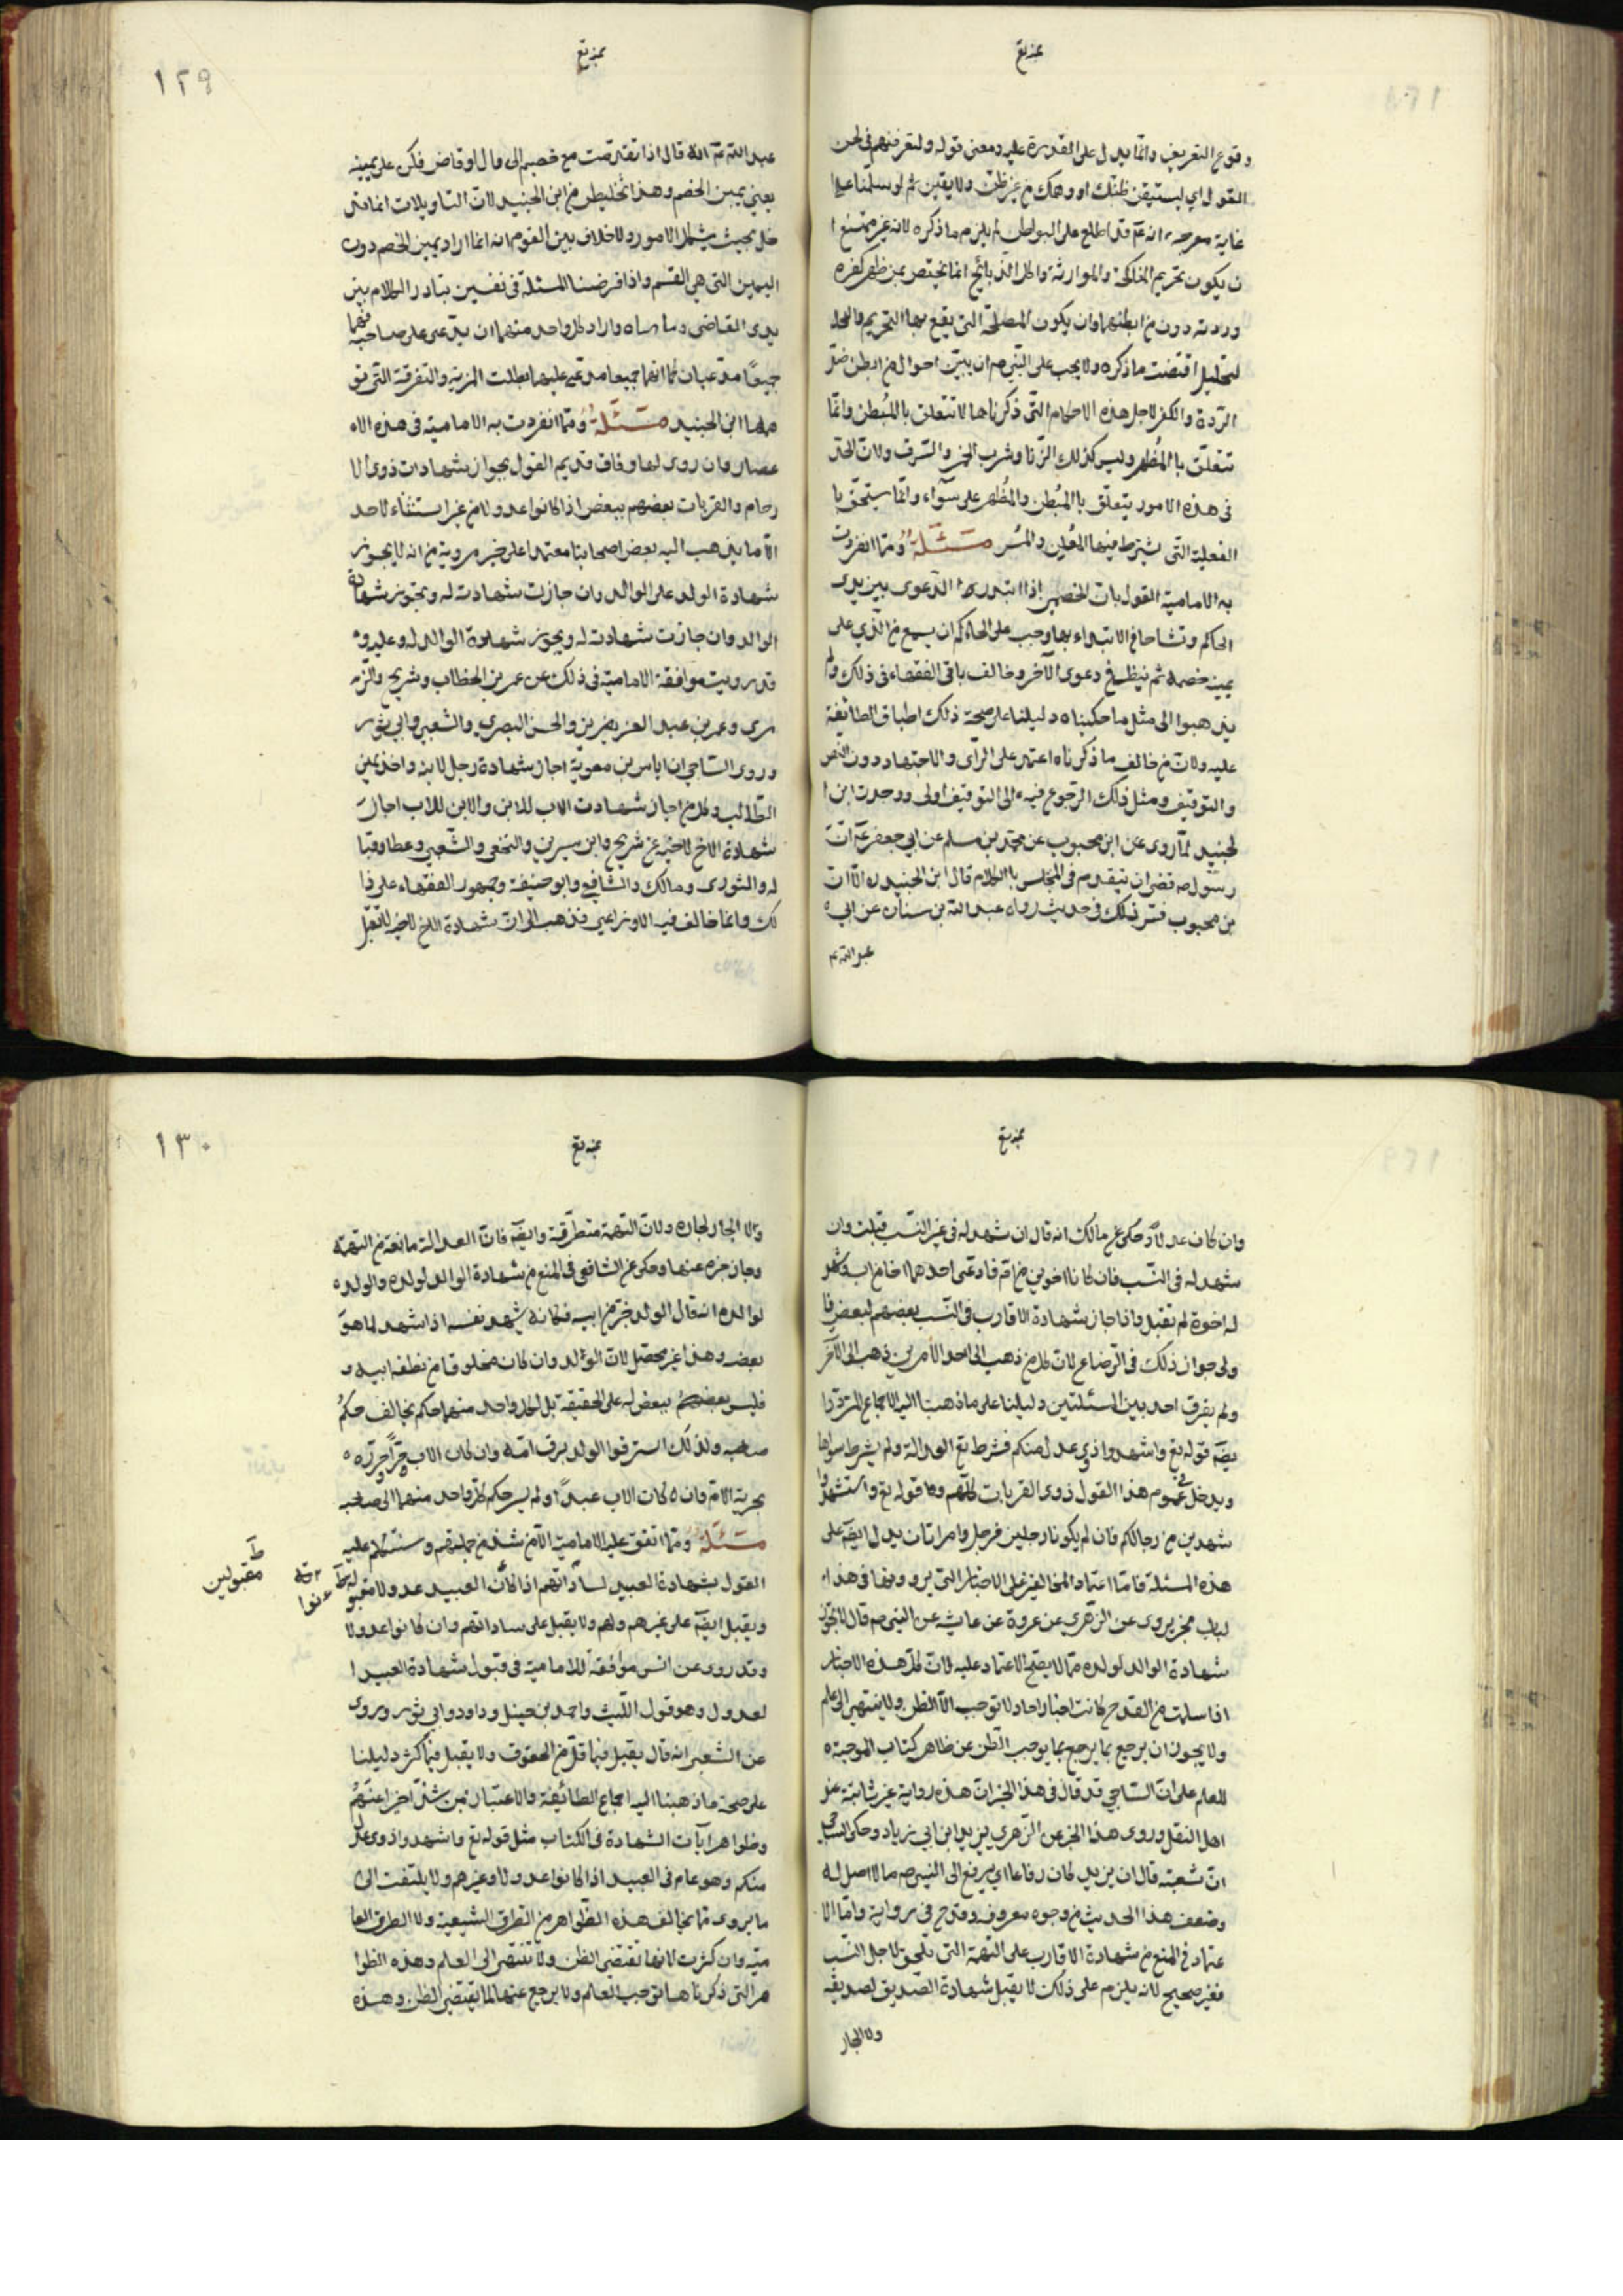 وقوع التعريف وانما يدل على القدرة عليه ومعنى قوله ولتعرفنهم فى لحن
القول اى ليستيقن ظنك او وهمك من غير ظن ولا يقين ثم لو سلمنا على
غاية مقترحه انه عم قد اطلع على البواطن لم يلزم ما ذكره لانه غير ممتنع ا
ن يكون تحريم المناكحة والموارثة واكل الذبائح انما يختص بمن ظهر كفره
وردته دون من ابطنهما وان يكون المصلحة التى يقع بها التحريم والتحليل
اقتضت ما ذكره ولا يجب على النبى ص ان يبين احوال من ابطن
الردة والكفر لاجل هذه الاحكام التى ذكرناها لا تتعلق بالمُبطن وانما
تتعلق بالمُظهر وليس كذلك الزنا وشرب الخمر والسرقة ولان الحد
فى هذه الامور يتعلق بالمُبطن والمُظهر على سواء وانما يستحق با
الفعلية التى يشترط فيها المُعلن والمُسر مسئلة ومما انفردت
به الامامية القول بان الخصمين اذا ابتدرا الدعوى بين يدى
الحاكم وتشاحا فى الابتداء بها وجب على الحاكم ان يسمع من الذى على
يمين خصمه ثم ينظر فى دعوى الآخر وخالف باقى الفقهاء فى ذلك ولم
يذهبوا الى مثل ما حكيناه دليلنا على صحة ذلك اطباق الطائفة
عليه ولان من خالف ما ذكرناه اعتمد على الرأى والاجتهاد دون النص
والتوقيف ومثل ذلك الرجوع فيه الى التوقيف اولى ووجدت ابن ا
لجنيد لما روى عن ابن محبوب عن محمد بن مسلم عن ابى جعفر عم ان
رسول ص قضى ان يتقدم فى المجلس بالكلام قال ابن الجنيد ره الا ان
بن محبوب فسر ذلك فى حديث رواه عبد الله بن سنان عن ابى ه
عبد الله عم
١٢٩
عبد الله عم انه قال اذا تقدمت مع خصم الى وال او قاض فكن على يمينه
يعنى يمين الخصم وهذا تخليط من ابن الجنيد لان التأويلات انما
تدخل بحيث يشكل الامور ولا خلاف بين القوم انه انما اراد يمين الخصم دون
اليمين التى هى القسم واذا فرضنا المسئلة فى نفسين تبادرا الكلام بين
يدى القاضى وتناهباه واراد كل واحد منهما ان يدعى على صاحبه فهما
جميعًا مدعيان كما انهما جميعا مدعى عليهما بطلت المزية والتفرقة التى تو
همها ابن الجنيد مسئلة ومما انفردت به الامامية فى هذه الا
عصار وان روى لها وفاق قديم القول بجواز شهادات ذوى الا
رحام والقرابات بعضهم لبعض اذا كانوا عدولا من غير استثناء لاحد
الا ما يذهب اليه بعض اصحابنا معتمدا على خبر يرويه من انه لا يجوز
شهادة الولد على الوالد وان جازت شهادته له ويجوز شهادة
الوالد وان جازت شهادته له ويجوز شهادة الوالد له وعليه و
قد رويت موافقة الامامية فى ذلك عن عمر بن الخطاب وشريح والز
هرى وعمر بن عبد العزيز والحسن البصرى والشعبى وابى ثور
وروى الساجى ان اياس بن معوية اجاز شهادة رجل لابنه واخذ يمين
الطالب وكل من اجاز شهادت الاب للابن والابن للاب اجاز
شهادة الاخ لاخيه عن شريح وابن سيرين والنخعى والشعبى وعطا وقتا
ده والثورى ومالك والشافعى وابو حنيفة وجمهور الفقهاء على ذا
لك وانما خالف فيه الاوزاعى فذهب الى ان شهادة الاخ للاخ لا تقبل
وان كان عدلاً وحكى عن مالك انه قال ان شهد له فى غير النسب قبلت وان
شهد له فى النسب فان كانا اخوين من ام فادعى احدهما اخا من اب وشهد
له اخوه لم تقبل واذا جاز شهادة الاقارب فى النسب بعضهم لبعض فا
ولى جواز ذلك فى الرضاع لان كل من ذهب الى احد الأمرين ذهب الى الآخر
ولم يفرق احد بين المسئلتين دليلنا على ما ذهبنا اليه الاجماع المتردد وا
يضا قوله تع واشهدوا ذوى عدل منكم فشرط تع العدالة ولم يشرط سواها
ويدخل فى عموم هذا القول ذوى القرابات كلهم وكذا قوله تع واستشهدوا
شهيدين من رجالكم فان لم يكونا رجلين فرجل وامراتان يدل ايضا على
هذه المسئلة فاما اعتماد المخالفين على الاخبار التى يروونها فى هذا ا
لباب فخبر يروى عن الزهرى عن عروة عن عايشه عن النبى ص قال لا تجوز
شهادة الوالد لولده مما لا يصح الاعتماد عليه لان كل هذه الاخبار
اذا سلمت من القدوح كانت اخبار احاد لا توجب الا الظن ولا ينتهى الى علم
ولا يجوز ان يرجع بما يرجع بما يوجب الظن عن ظاهر كتاب الموجبة
للعلم على ان الساجى قد قال فى هذا الخبر ان هذه رواية غير ثابتة عند
اهل النقل وروى هذا الخبر عن الزهرى يزيد ابن ابى زياد وحكى الساجى
ان شعبة قال ان يزيد كان رفاعا اى يرفع الى النبى ص ما لا اصل له
وضعف هذا الحديث من وجوه معروفة وقدح فى رواية واما الا
عتماد فى المنع من شهادة الاقارب على التهمة التى تلحق لاجل النسب
فغير صحيح لانه يلزم على ذلك لا يقبل شهادة الصديق لصديقه
ولا الجار
١٣٠
ولا الجار لجاره ولان التهمة متطرقة وايضا فان العدالة مانعة من التهمة
وحاجزه عنها وحكى عن الشافعى فى المنع من شهادة الوالد لولده والولد
لوالده انه قال الولد جزء من ابيه فكانه يشهد نفسه اذا شهد لما هو
بعضه وهذا غير محصل لان الولد وان كان مخلوقا من نطفة ابيه
فليس ببعض له على الحقيقة بل لكل واحد منهما حكم يخالف حكم
صاحبه ولذلك استرقوا الولد برق امه وان كان الاب حرًا وحرروه
بحرية الام وان كان الاب عبدًا ولم يسر حكم كل واحد منهما الى صاحبه
مسئلة ومما اتفق عليه الامامية الا من شذ من جملتهم وسنتكلم عليه
القول بشهادة العبيد لساداتهم اذا كان العبيد عدولا مقبوله
ويقبل ايضا على غيرهم ولهم ولا يقبل على ساداتهم وان كانوا عدولا
وقد روى عن انس موافقة للامامية فى قبول شهادة العبيد ا
لعدول وهو قول الليث واحمد بن حنبل وداود وابى ثور وروى
عن الشعبى انه قال يقبل فيما قل من الحقوق ولا يقبل فيما كثر دليلنا
على صحة ما ذهبنا اليه اجماع الطائفة ولا اعتبار بمن شذ اخيرا عنهم
وظواهر آيات الشهادة فى الكتاب مثل قوله تع واشهدوا ذوى عدل
منكم وهو عام فى العبيد اذا كانوا عدولا وغيرهم ولا يلتفت الى
ما يروى مما يخالف هذه الظواهر من الطرق الشيعية ولا الطرق العا
مية وان كثرت لانها تقتضى الظن ولا تنتهى الى العلم وهذه الظوا
هر التى ذكرناها توجب العلم ولا يرجع عنها لما يقتضى الظن وهذه
مقبولين